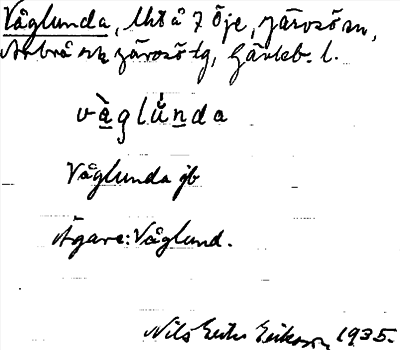 Våglunda, Utå 7 Öje, Järvsö sn,
Arbrå och Järvsö tg, Gävleb. l.
vàglúnda
Våglunda gb
Ägare: Våglund.
Nils Eriksson 1935.